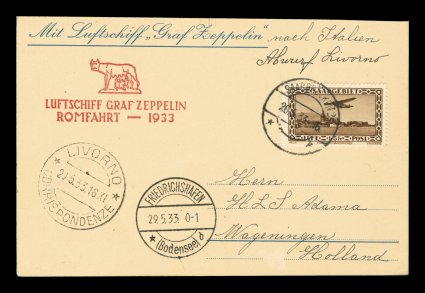 Mit Luftschiff „Graf Zeppelin" nach Italien
Abwurf Livorno
LUFTSCHIFF GRAF ZEPPELIN
ROMFAHRT — 1933
SAARGEBIET
POST
LIVORNO
CORRISPONDENZE
FRIEDRICHSHAFEN
29.5.33 0-1
(Bodensee) b
Herrn
H L S Adama
Wageningen
Holland